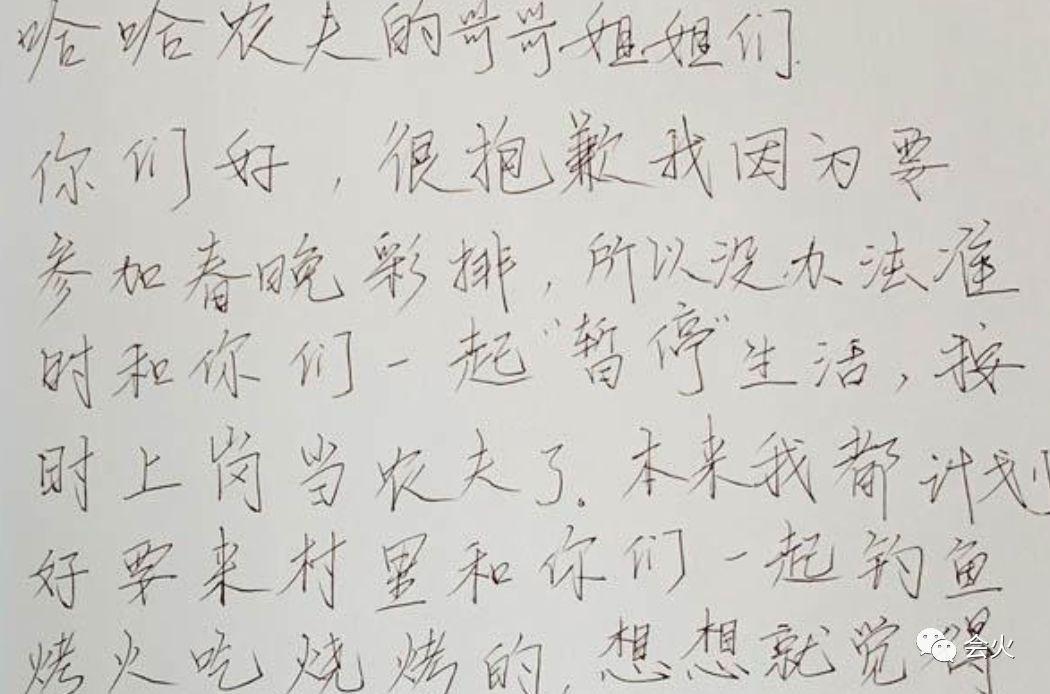 哈哈农夫的哥哥姐姐们.
你们好，很抱歉我因为要
参加春晚彩排，所以没办法准
时和你们一起"暂停"生活，按
时上岗当农夫了。本来我都计划
好要来村里和你们一起钓鱼
烤火吃烧烤的，想想就觉得
会火